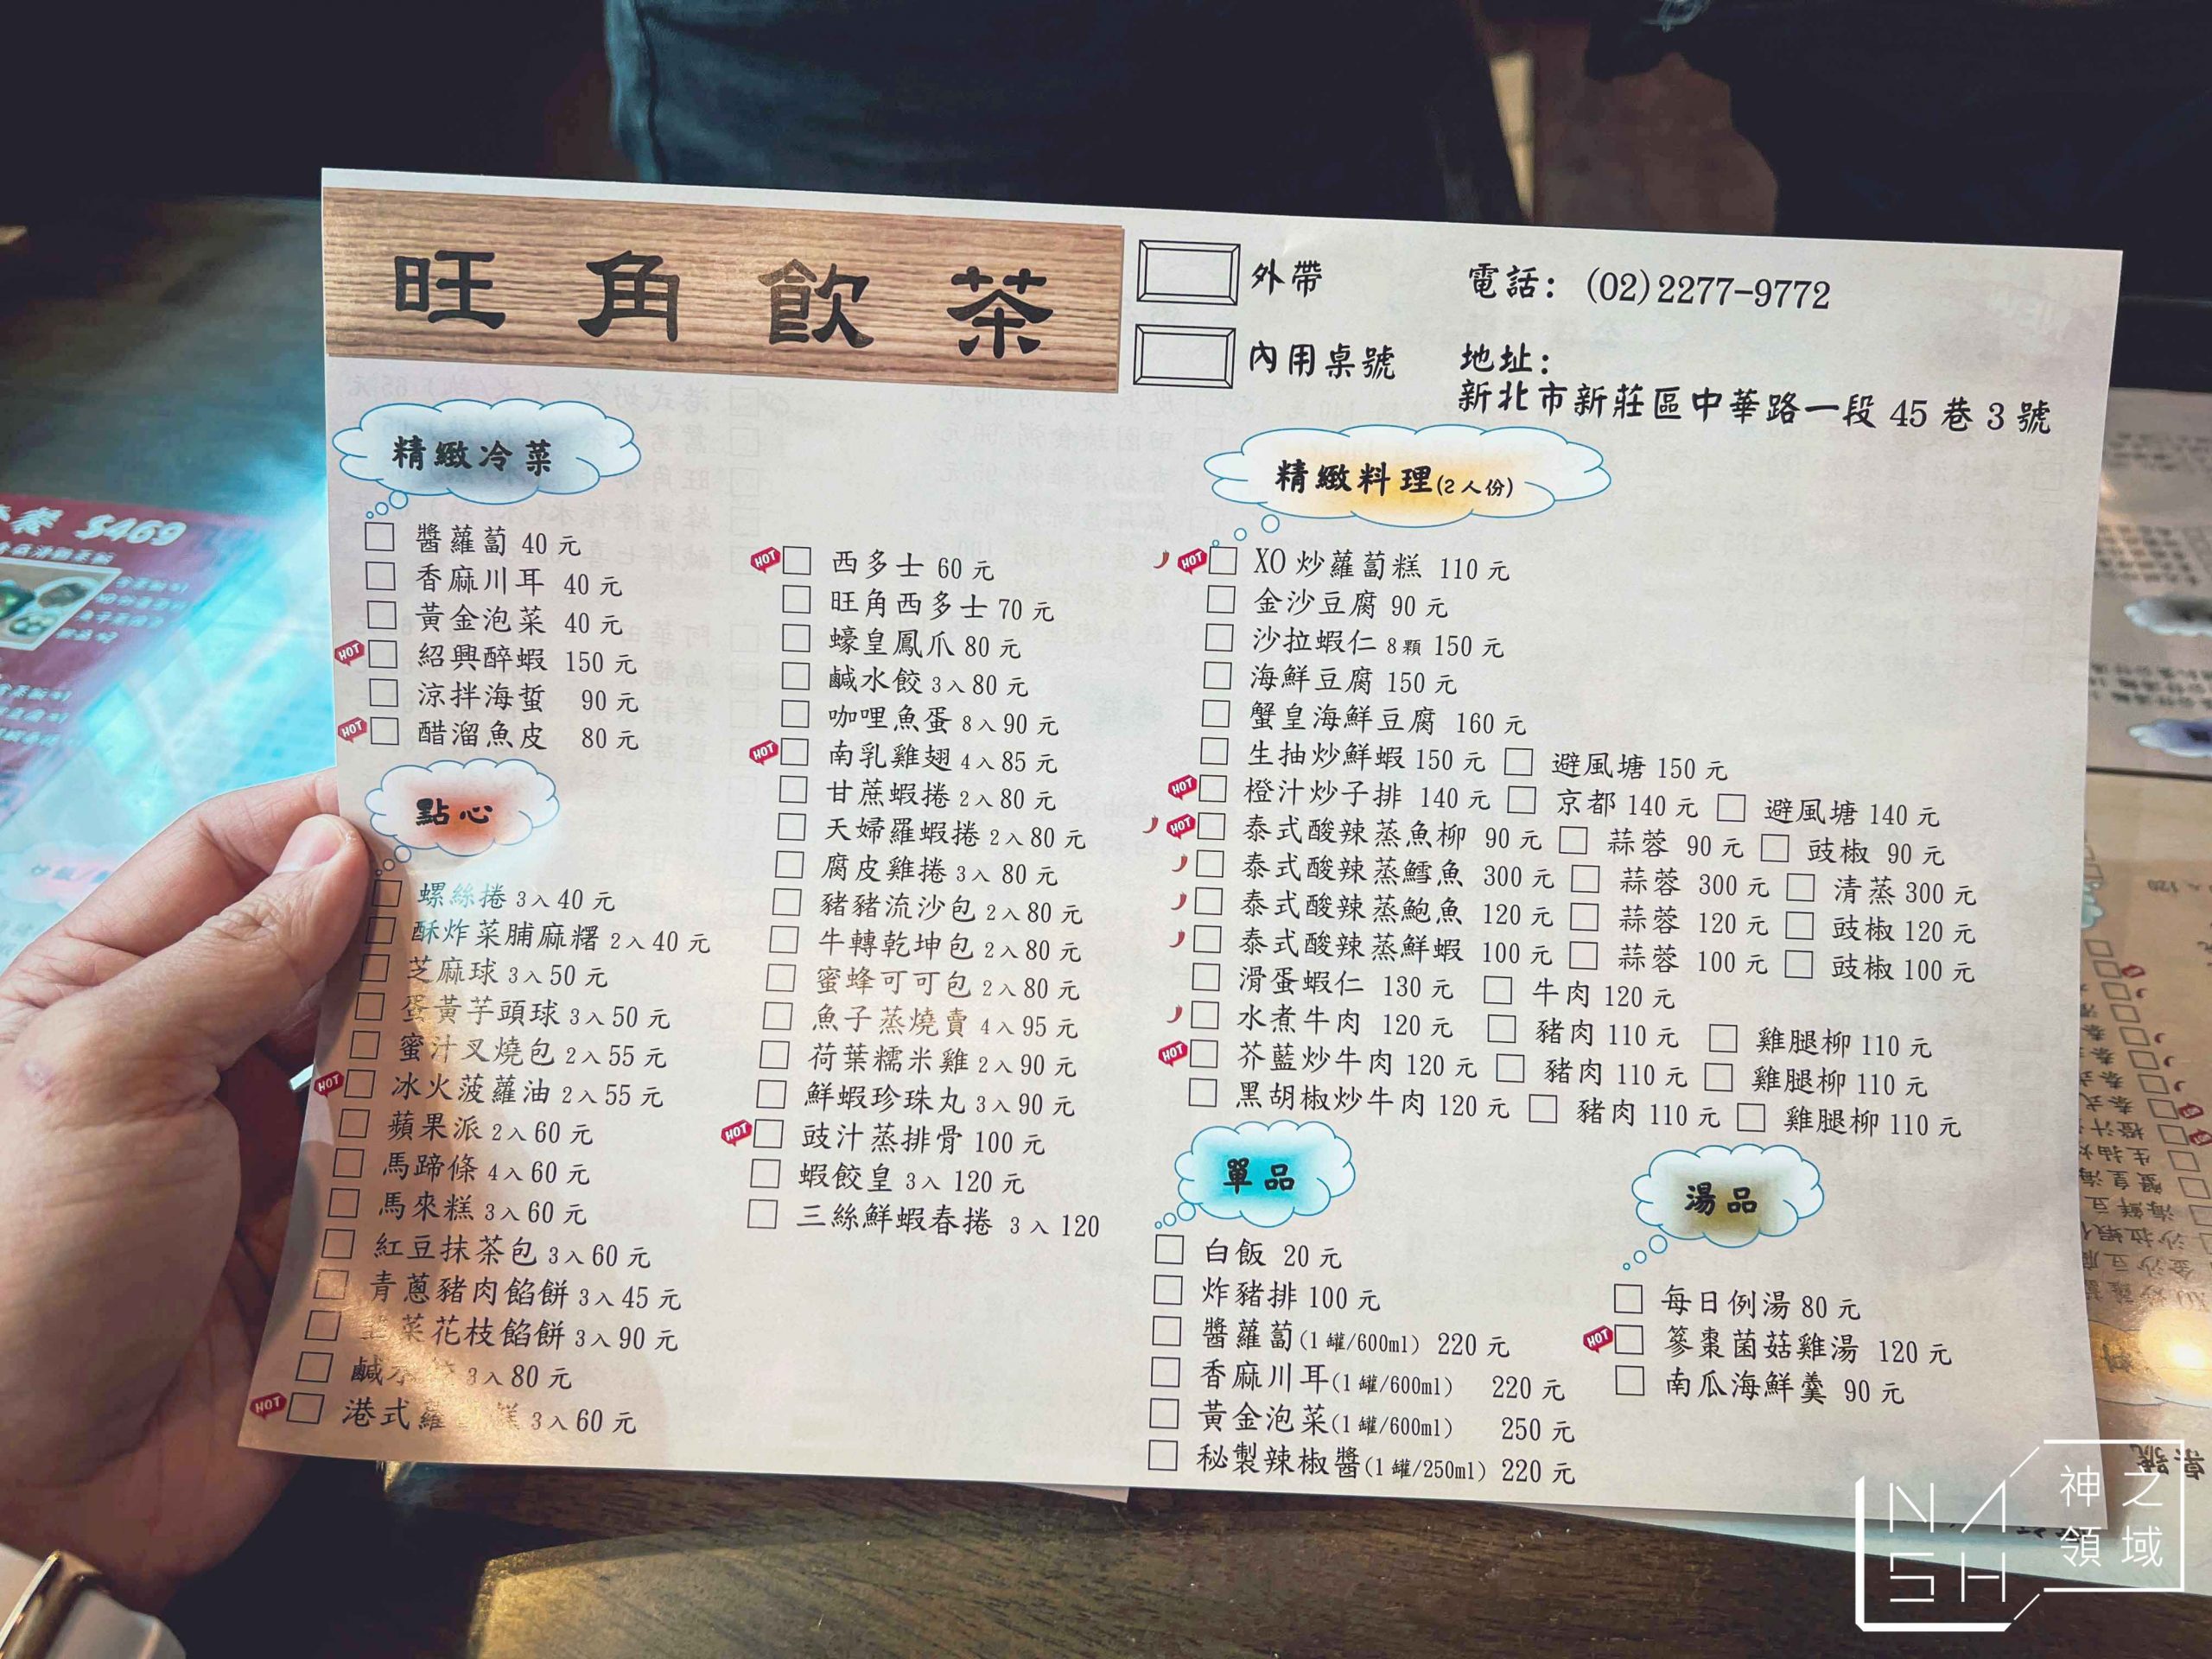 旺角飲茶
外帶
內用桌號
電話: (02)2277-9772
地址:
新北市新莊區中華路一段 45 巷 3 號
精緻冷菜
醬蘿蔔 40 元
香麻川耳 40 元
黃金泡菜 40 元
HOT 紹興醉蝦 150 元
涼拌海蜇 90 元
HOT 醋溜魚皮 80 元
點心
螺絲捲 3入 40 元
酥炸菜脯麻糬 2入 40 元
芝麻球 3入 50 元
蛋黃芋頭球 3入 50 元
蜜汁叉燒包 2入 55 元
HOT 冰火菠蘿油 2入 55 元
蘋果派 2入 60 元
馬蹄條 4入 60 元
馬來糕 3入 60 元
紅豆抹茶包 3入 60 元
青蔥豬肉餡餅 3入 45 元
菜花枝餡餅 3入 90 元
鹹水 3入 80 元
HOT 港式蘿 糕 3入 60 元
HOT 西多士 60 元
旺角西多士 70 元
蠔皇鳳爪 80 元
鹹水餃 3入 80 元
咖哩魚蛋 8入 90 元
HOT 南乳雞翅 4入 85 元
甘蔗蝦捲 2入 80 元
天婦羅蝦捲 2入 80 元
腐皮雞捲 3入 80 元
豬豬流沙包 2入 80 元
牛轉乾坤包 2入 80 元
蜜蜂可可包 2入 80 元
魚子蒸燒賣 4入 95 元
荷葉糯米雞 2入 90 元
鮮蝦珍珠丸 3入 90 元
HOT 豉汁蒸排骨 100 元
蝦餃皇 3入 120 元
三絲鮮蝦春捲 3入 120
精緻料理(2人份)
HOT XO 炒蘿蔔糕 110 元
金沙豆腐 90 元
沙拉蝦仁 8顆 150 元
海鮮豆腐 150 元
蟹皇海鮮豆腐 160 元
生抽炒鮮蝦 150 元 避風塘 150 元
HOT 橙汁炒子排 140 元 京都 140 元 避風塘 140 元
HOT 泰式酸辣蒸魚柳 90 元 蒜蓉 90 元 豉椒 90 元
泰式酸辣蒸鱈魚 300 元 蒜蓉 300 元 清蒸 300 元
泰式酸辣蒸鮑魚 120 元 蒜蓉 120 元 豉椒 120 元
泰式酸辣蒸鮮蝦 100 元 蒜蓉 100 元 豉椒 100 元
滑蛋蝦仁 130 元 牛肉 120 元
水煮牛肉 120 元 豬肉 110 元 雞腿柳 110 元
HOT 芥藍炒牛肉 120 元 豬肉 110 元 雞腿柳 110 元
黑胡椒炒牛肉 120 元 豬肉 110 元 雞腿柳 110 元
單品
白飯 20 元
炸豬排 100 元
醬蘿蔔(1罐/600ml) 220 元
香麻川耳(1罐/600ml) 220 元
黃金泡菜(1罐/600ml) 250 元
秘製辣椒醬(1罐/250ml) 220 元
湯品
每日例湯 80 元
HOT 蔘棗菌菇雞湯 120 元
南瓜海鮮羹 90 元
餐 $469
NASH
神之領域